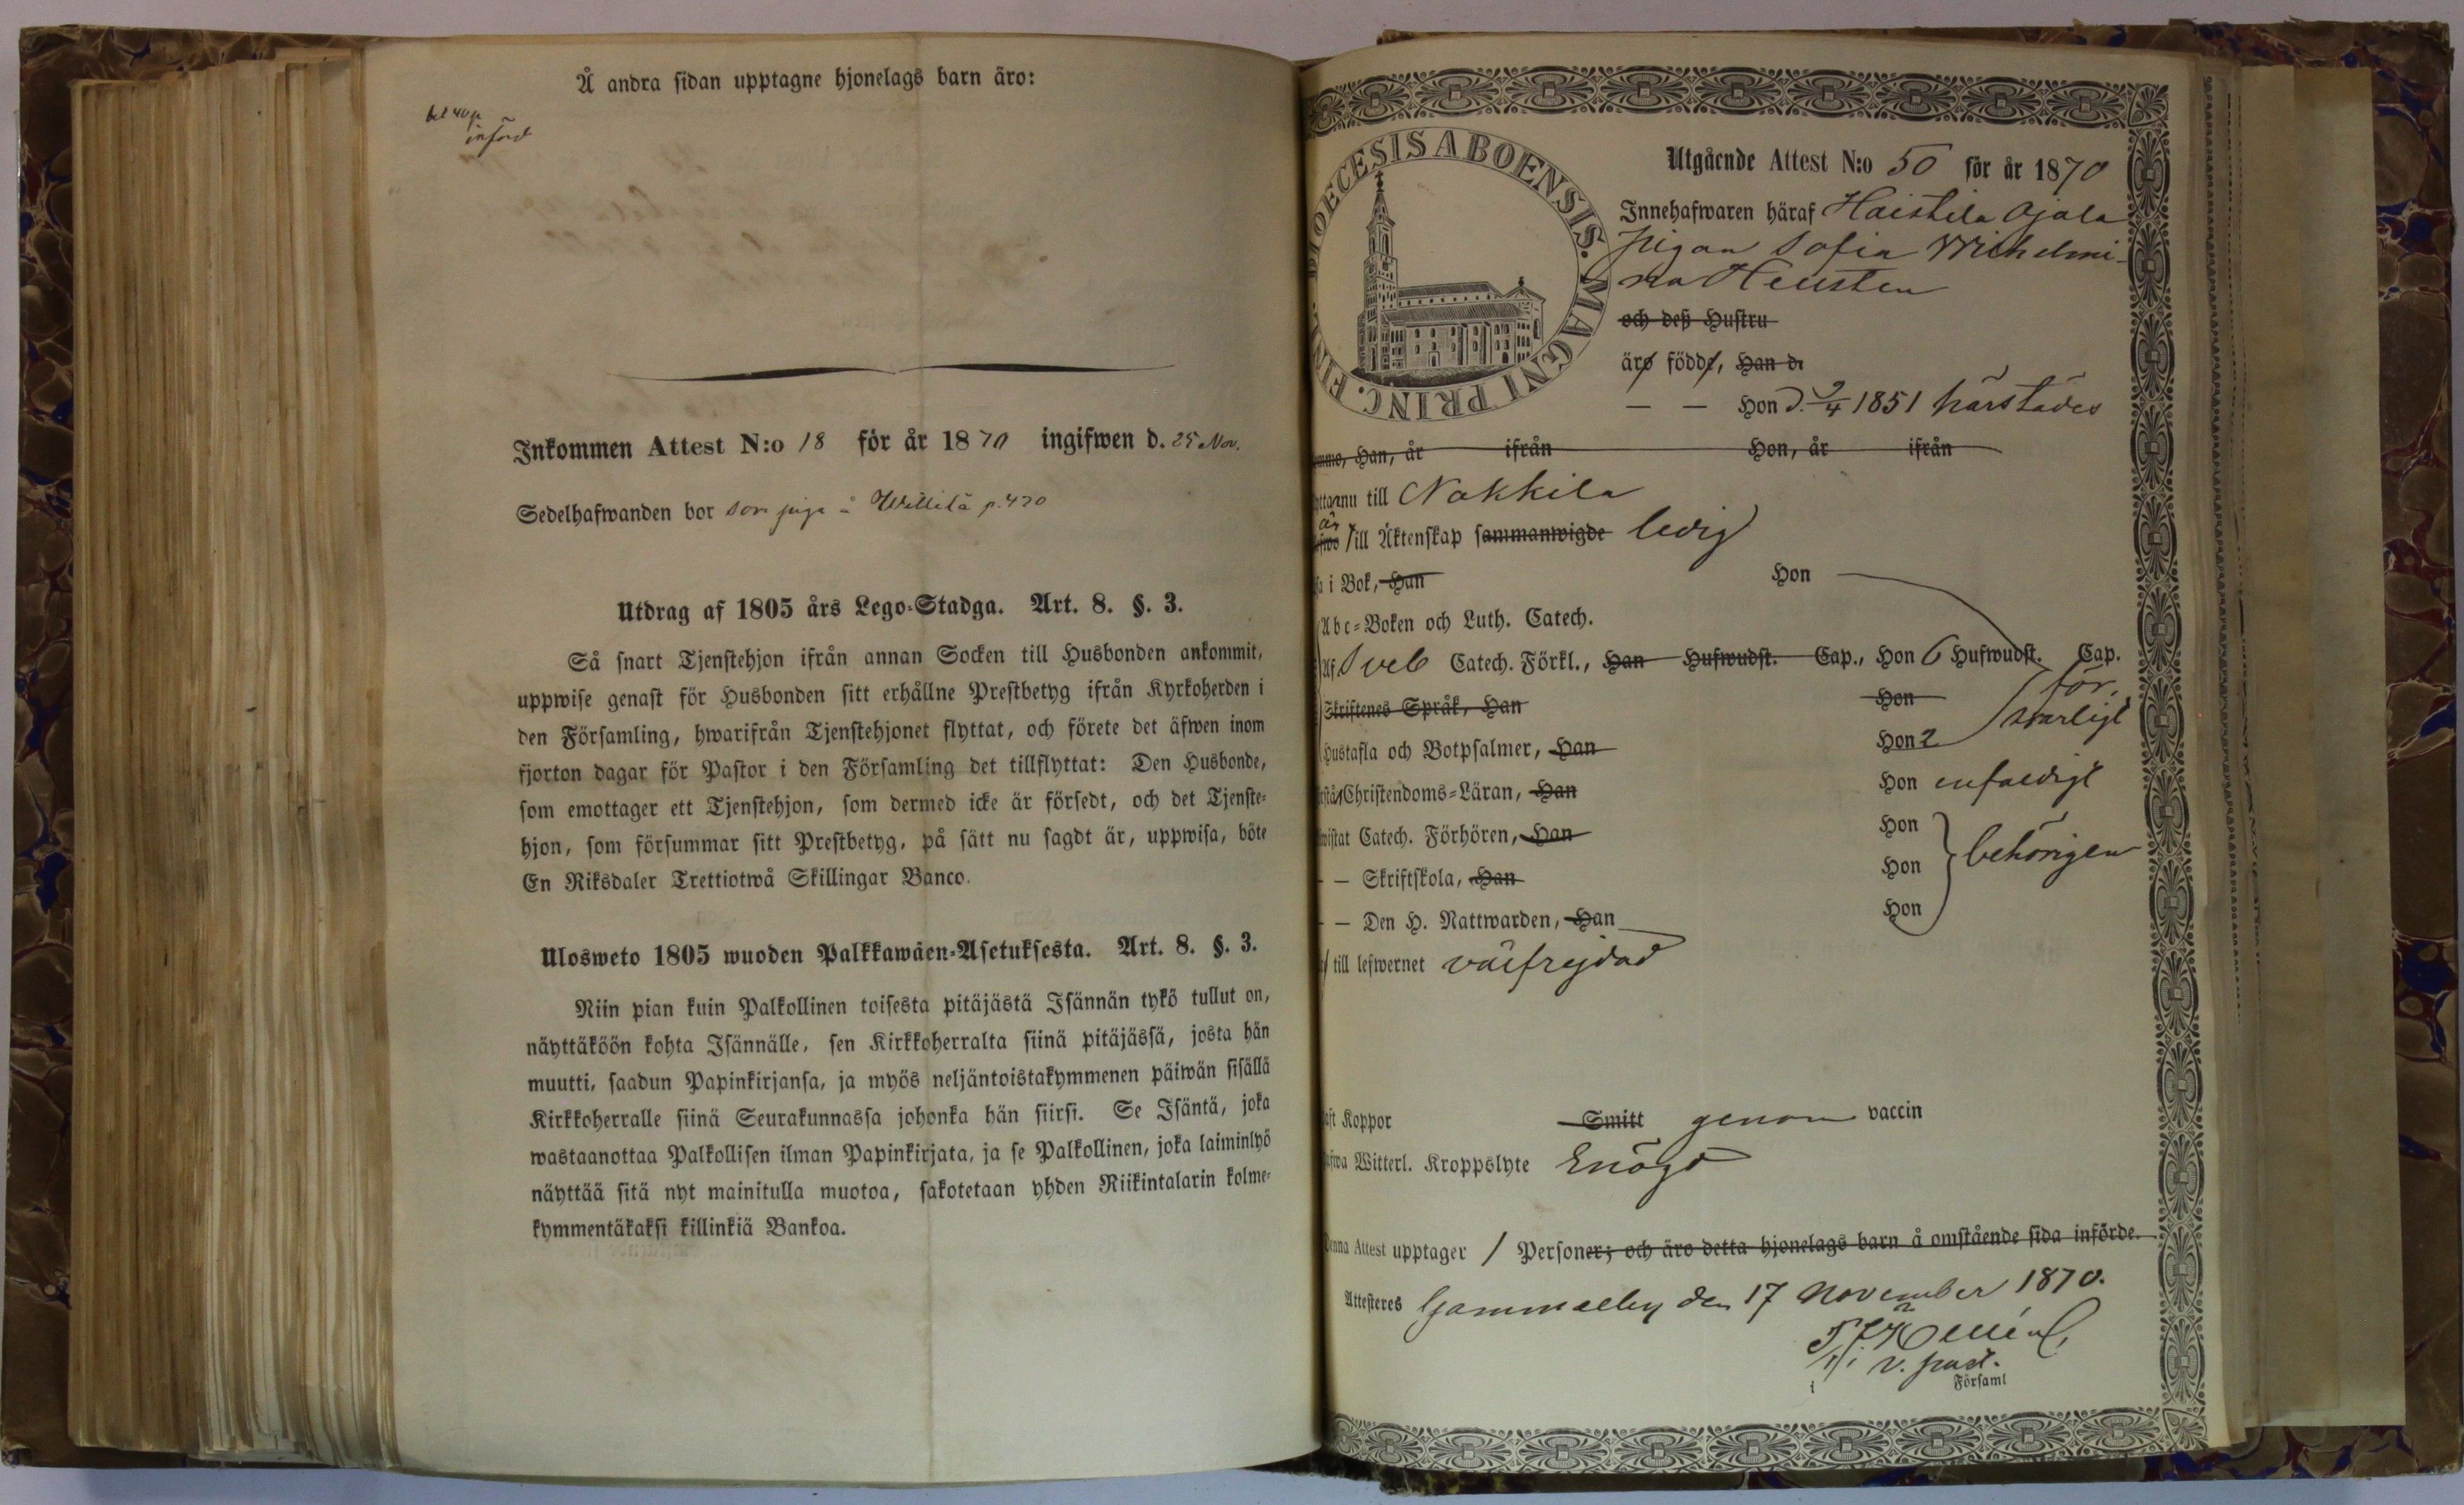 Å andra sidan upptagne hjonelags barn äro:
bet 40 p
införd
Inkommen Attest N:o 18 för år 1870 ingifwen d. 25 Nov.
Sedelhafwanden bor som piga å Willilä p. 420
Utdrag af 1805 års Lego-Stadga. Art. 8. §. 3.
Så snart Tjenstehjon ifrån annan Socken till Husbonden ankommit,
uppwise genast för Husbonden sitt erhållne Prestbetyg ifrån Kyrkoherden i
den Församling, hwarifrån Tjenstehjonet flyttat, och förete det äfwen inom
fjorton dagar för Pastor i den Församling det tillflyttat: Den Husbonde,
som emottager ett Tjenstehjon, som dermed icke är försedt, och det Tjenste-
hjon, som försummar sitt Prestbetyg, på sätt nu sagdt är, uppwisa, böte
En Riksdaler Trettiotwå Skillingar Banco.
Ulosweto 1805 wuoden Palkkawäen-Asetuksesta. Art. 8. §. 3.
Niin pian kuin Palkollinen toisesta pitäjästä Isännän tykö tullut on,
näyttäköön kohta Isännälle, sen Kirkkoherralta siinä pitäjässä, josta hän
muutti, saadun Papinkirjansa, ja myös neljäntoistakymmenen päiwän sisällä
Kirkkoherralle siinä Seurakunnassa johonka hän siirsi. Se Isäntä, joka
wastaanottaa Palkollisen ilman Papinkirjata, ja se Palkollinen, joka laiminlyö
näyttää sitä nyt mainitulla muotoa, sakotetaan yhden Riikintalarin kolme-
kymmentäkaksi killinkiä Bankoa.
DIOECESIS ABOENSIS. MAGNI PRINC. FINL.
Utgående Attest N:o 50 för år 1870
Innehafwaren häraf Haistila Ojala
Pigan Sofia Wilhelmi-
na Hellsten
och deß Hustru
äro födde, Han d.
— — Hon d. 2/4 1851 härstädes
Han, år ifrån Hon, år ifrån
nu till Nakkila
är
till Äktenskap sammanwigde ledig
i Bok, Han Hon
Abc-Boken och Luth. Catech.
Af Sveb Catech. Förkl., Han Hufwudst. Cap., Hon 6 Hufwudst. Cap.
Skriftenes Språk, Han Hon för-
svarligt
Hustafla och Botpsalmer, Han Hon 2
Christendoms-Läran, Han Hon enfaldigt
Catech. Förhören, Han Hon
— Skriftskola, Han Hon behörigen
— Den H. Nattwarden, Han Hon
till lefwernet välfrejdad
Koppor Smitt genom vaccin
Witterl. Kroppslyte Enögd
Denna Attest upptager 1 Personer; och äro detta hjonelags barn å omstående sida införde.
Attesteres Gammelby den 17 November 1870.
v. past.
i Församl